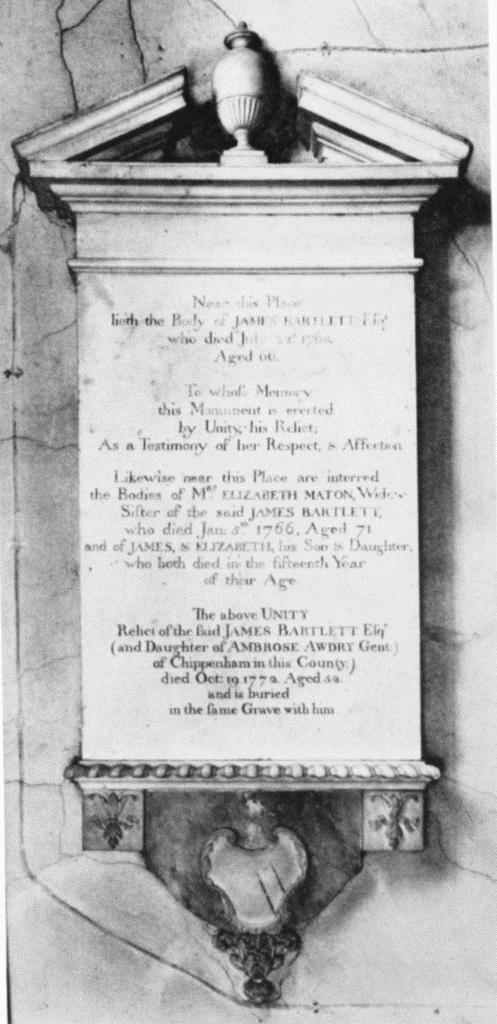 Near this Place
lieth the Body of JAMES BARTLETT Esqr
who died July 22d
Aged 66.
To whose Memory
this Monument is erected
by Unity his Relict;
As a Testimony of her Respect, & Affection
Likewise near this Place are interred
the Bodies of Mrs ELIZABETH MATON, Widow
Sister of the said JAMES BARTLETT,
who died Jan: 5th 1766, Aged 71
and of JAMES, & ELIZABETH, his Son & Daughter,
who both died in the fifteenth Year
of their Age.
The above UNITY
Relict of the ſaid JAMES BARTLETT Eſqr
(and Daughter of AMBROSE AWDRY Gent.)
of Chippenham in this County.)
died Oct: 19 1772. Aged 52
and is buried
in the ſame Grave with him